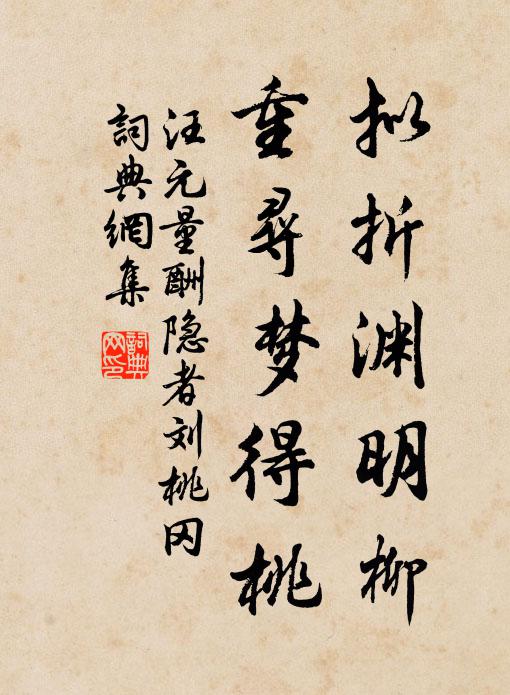 拟折渊明柳
重寻梦得桃
汪元量酬隐者刘桃冈
詞典網集
詞典网印